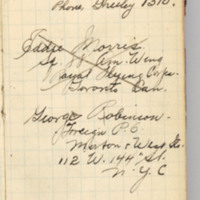 Phone Greeley 1310.
Eddie Morris
Sq. 78 Am. Wing
Royal Flying Corps.
Toronto Can.
George Robinson.
Foreign P.O
Morton & West Sts.
112 W. 144 St.
N.Y.C